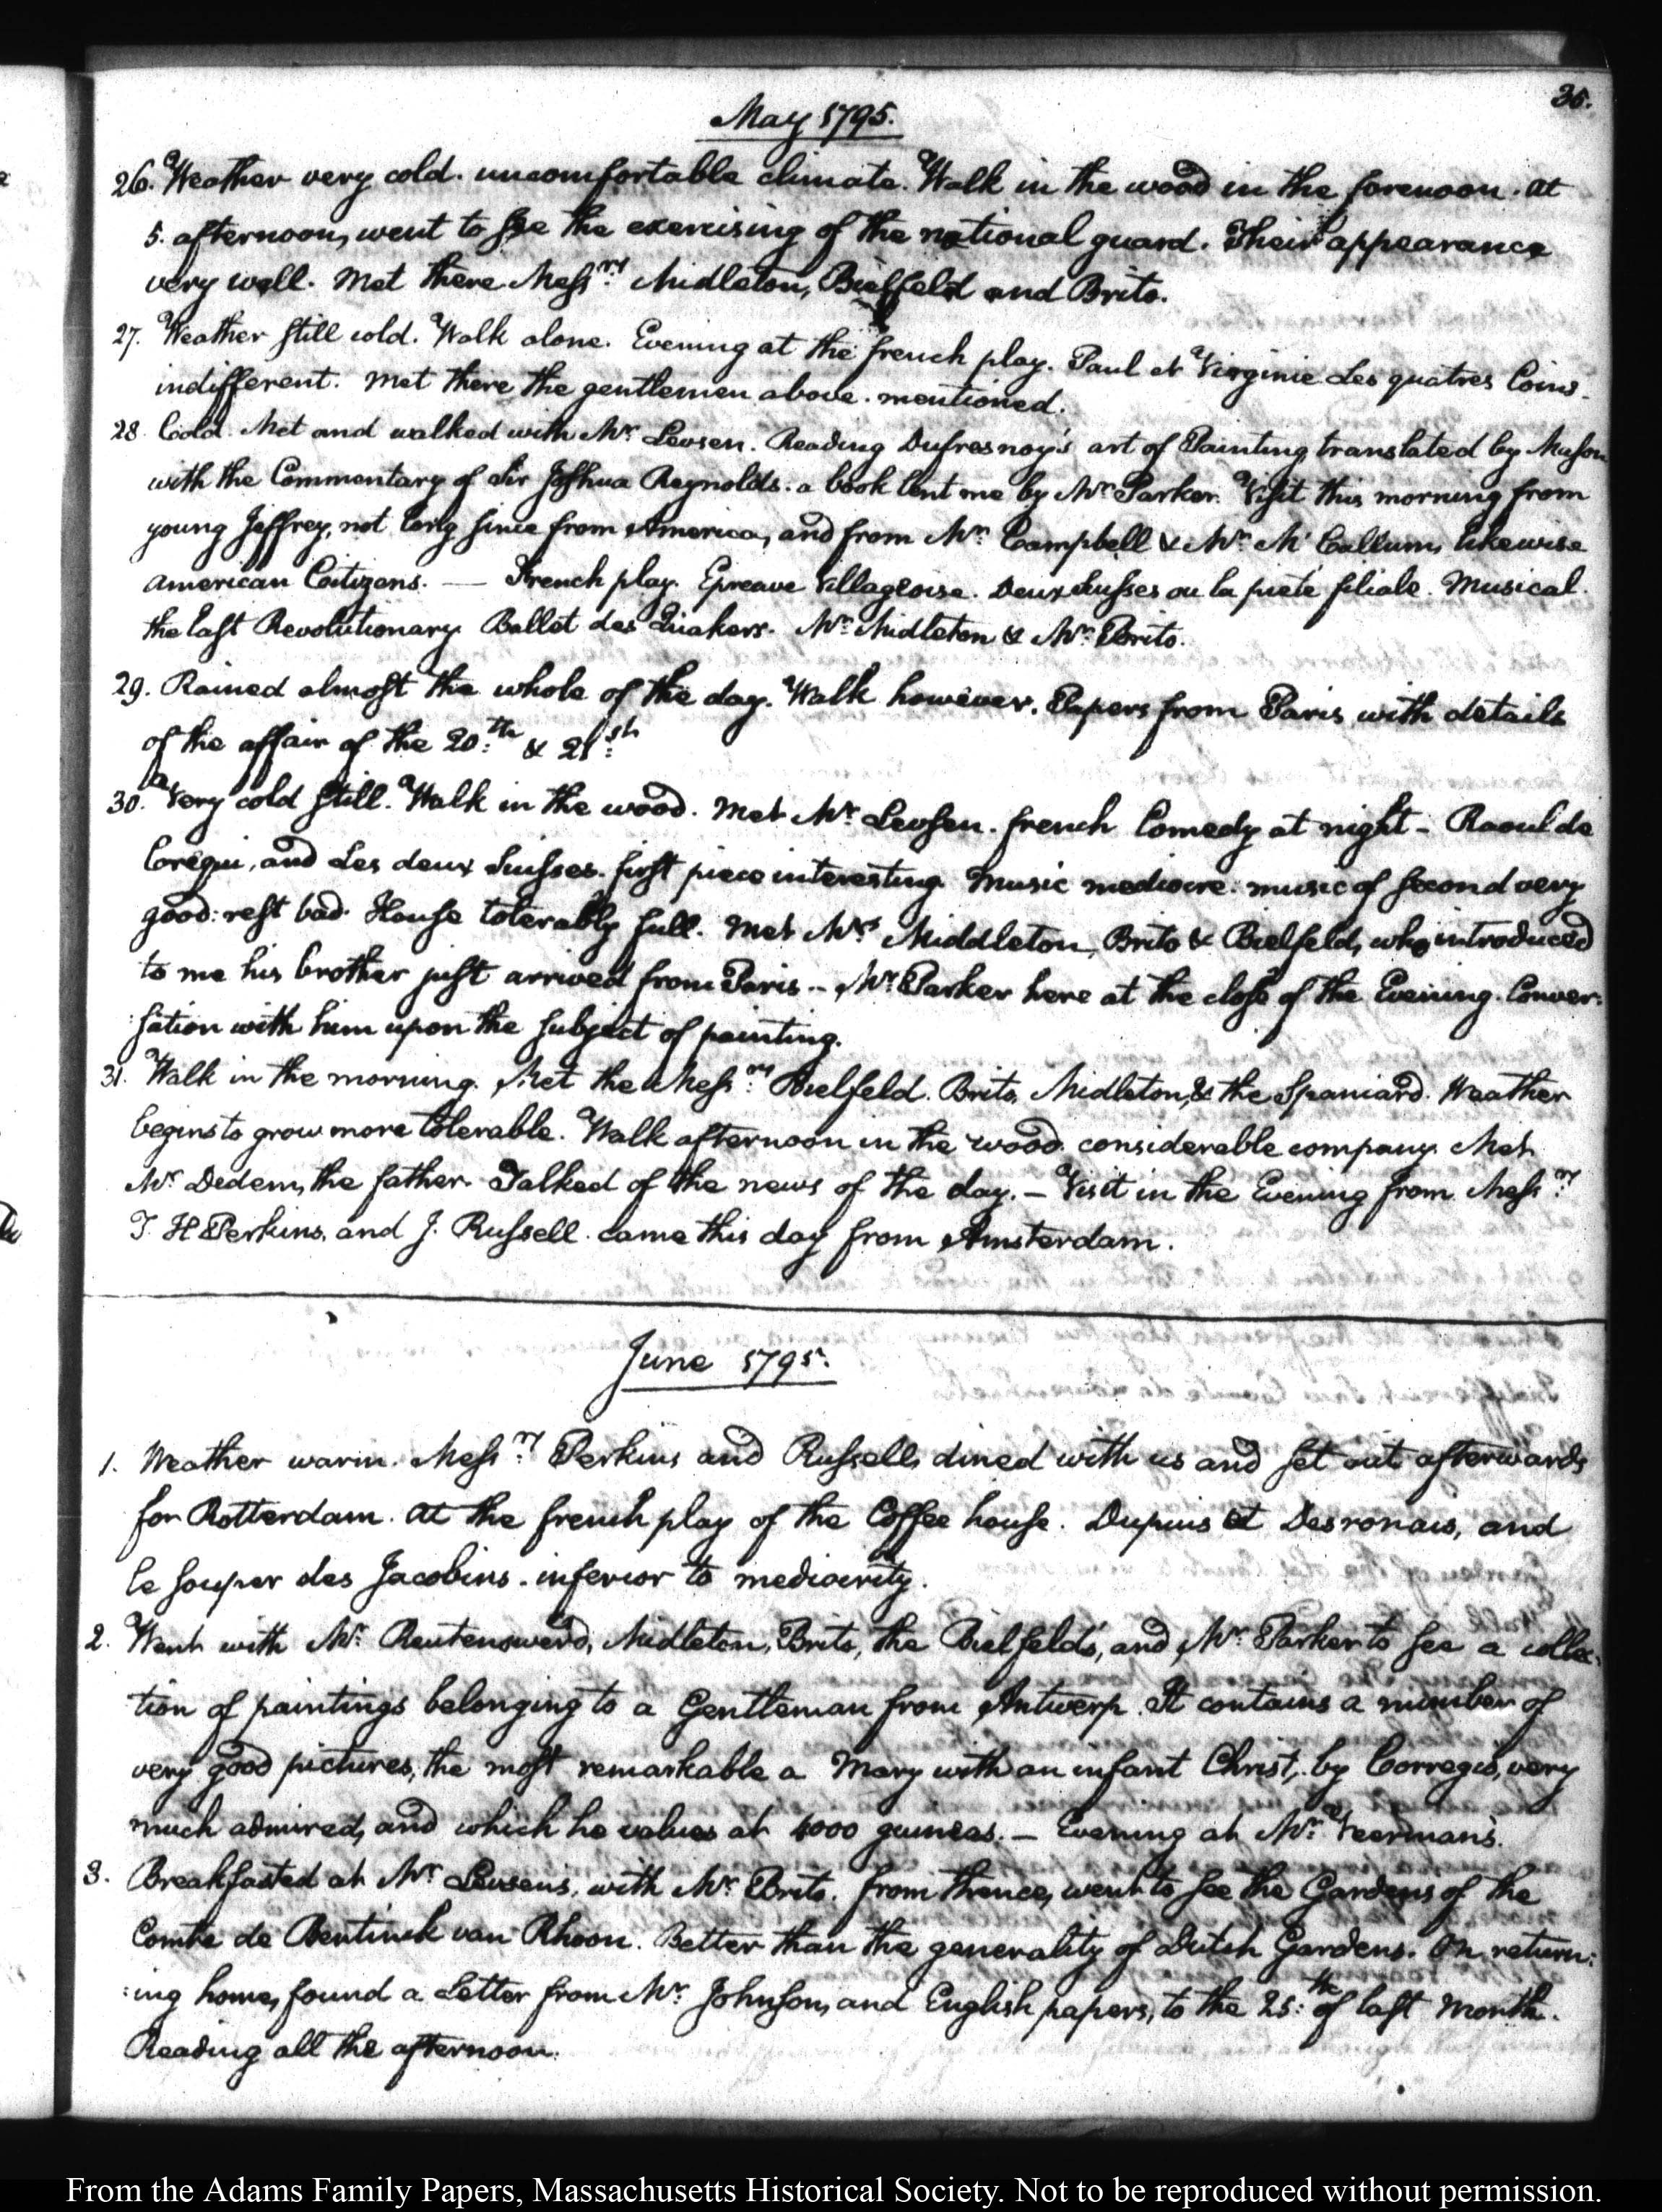 35.
May 1795.
26. Weather very cold. uncomfortable climate. Walk in the wood in the forenoon. At
5. afternoon, went to see the exercising of the national guard. Their appearance
very well. Met there Messrs: Midleton, Bielfeld and Brito.
27. Weather still cold. Walk alone. Evening at the french play. Paul et Virginie Les quatres Coins.
indifferent. Met there the gentlemen above. mentioned.
28. Cold. Met and walked with Mr: Levsen. Reading Dufresnoy's art of Painting translated by Mason
with the Commentary of Sir Joshua Reynolds. a book lent me by Mr: Parker. Visit this morning from
young Jeffrey, not long since from America, and from Mr: Campbell & Mr: Mc Callum, likewise
American Citizens. — French play. Epreuve villageoise. Deux Suisses ou la pieté filiale. Musical.
the last Revolutionary. Ballet des Quakers. Mr: Midleton & Mr: Brito.
29. Rained almost the whole of the day. Walk however. Papers from Paris with details
of the affair of the 20:th & 21:st
30. Very cold still. Walk in the wood. Met Mr: Levsen. french Comedy at night - Raoul de
Crequi, and Les deux Suisses. first piece interesting. Music mediocre: music of second very
good: rest bad. House tolerably full. Met Mrs Middleton, Brito & Bielfeld, who introduced
to me his brother just arrived from Paris — Mr: Parker here at the close of the Evening. Conver:
:sation with him upon the subject of painting.
31. Walk in the morning. Met the Messrs: Bielfeld. Brito, Midleton, & the Spaniard. Weather
begins to grow more tolerable. Walk afternoon in the wood. considerable company. Met
Mr: Dedem, the father. Talked of the news of the day. — Visit in the Evening from Messrs:
T. H Perkins, and J. Russell. came this day from Amsterdam.
June 1795.
1. Weather warm. Messrs: Perkins and Russell, dined with us and set out afterwards
for Rotterdam. At the french play of the Coffee house. Dupuis et Desronais, and
le souper des Jacobins. inferior to mediocrity.
2. Went with Mr: Reutenswerd, Midleton, Brito, the Bielfelds, and Mr: Parker to see a collec:
:tion of paintings belonging to a Gentleman from Antwerp. It contains a number of
very good pictures, the most remarkable a Mary with an infant Christ, by Corregio, very
much admired, and which he values at 4000 guineas. — Evening at Mr: Veerman's.
3. Breakfasted at Mr: Levsen's, with Mr: Brito. from thence, went to see the Gardens of the
Comte de Bentinck van Rhoon. Better than the generality of Dutch Gardens. On return:
:ing home, found a Letter from Mr: Johnson, and English papers, to the 25:th of last month.
Reading all the afternoon.
From the Adams Family Papers, Massachusetts Historical Society. Not to be reproduced without permission.